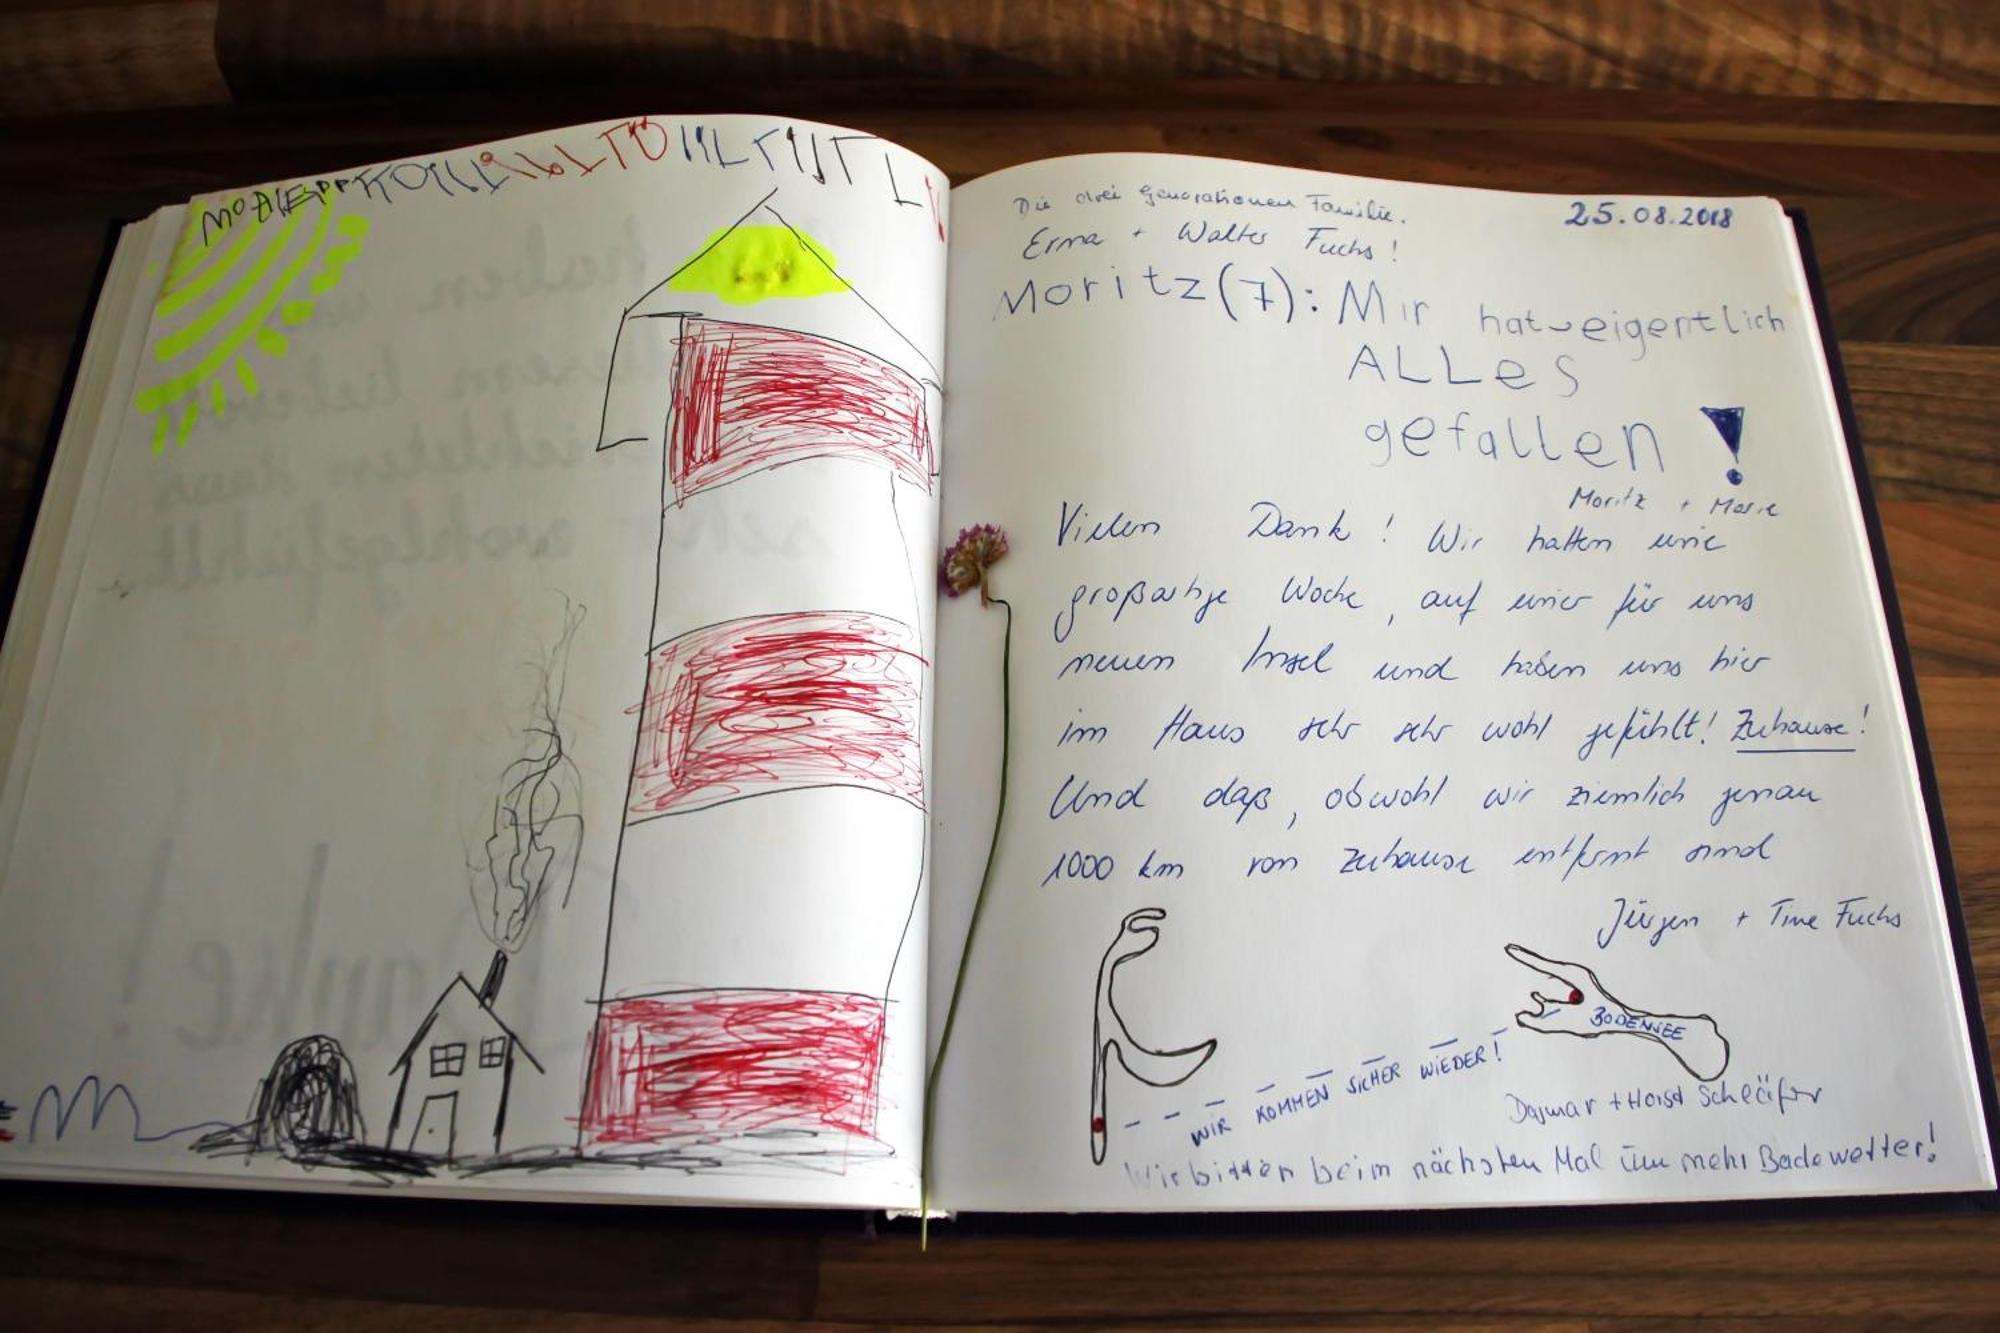 Die drei Generationen Familie. 25.08.2018
Erma + Walter Fuchs!
Moritz (7): Mir hat eigentlich
ALLes
gefallen!
Moritz + Marie
Vielen Dank! Wir hatten eine
großartige Woche, auf einer für uns
neuen Insel und haben uns hier
im Haus sehr sehr wohl gefühlt! Zuhause!
Und daß, obwohl wir ziemlich genau
1000 km von zuhause entfernt sind
Jürgen + Tine Fuchs
BODENSEE
WIR KOMMEN SICHER WIEDER!
Dagmar + Horst Schläfer
Wir bitten beim nächsten Mal um mehr Badewetter!